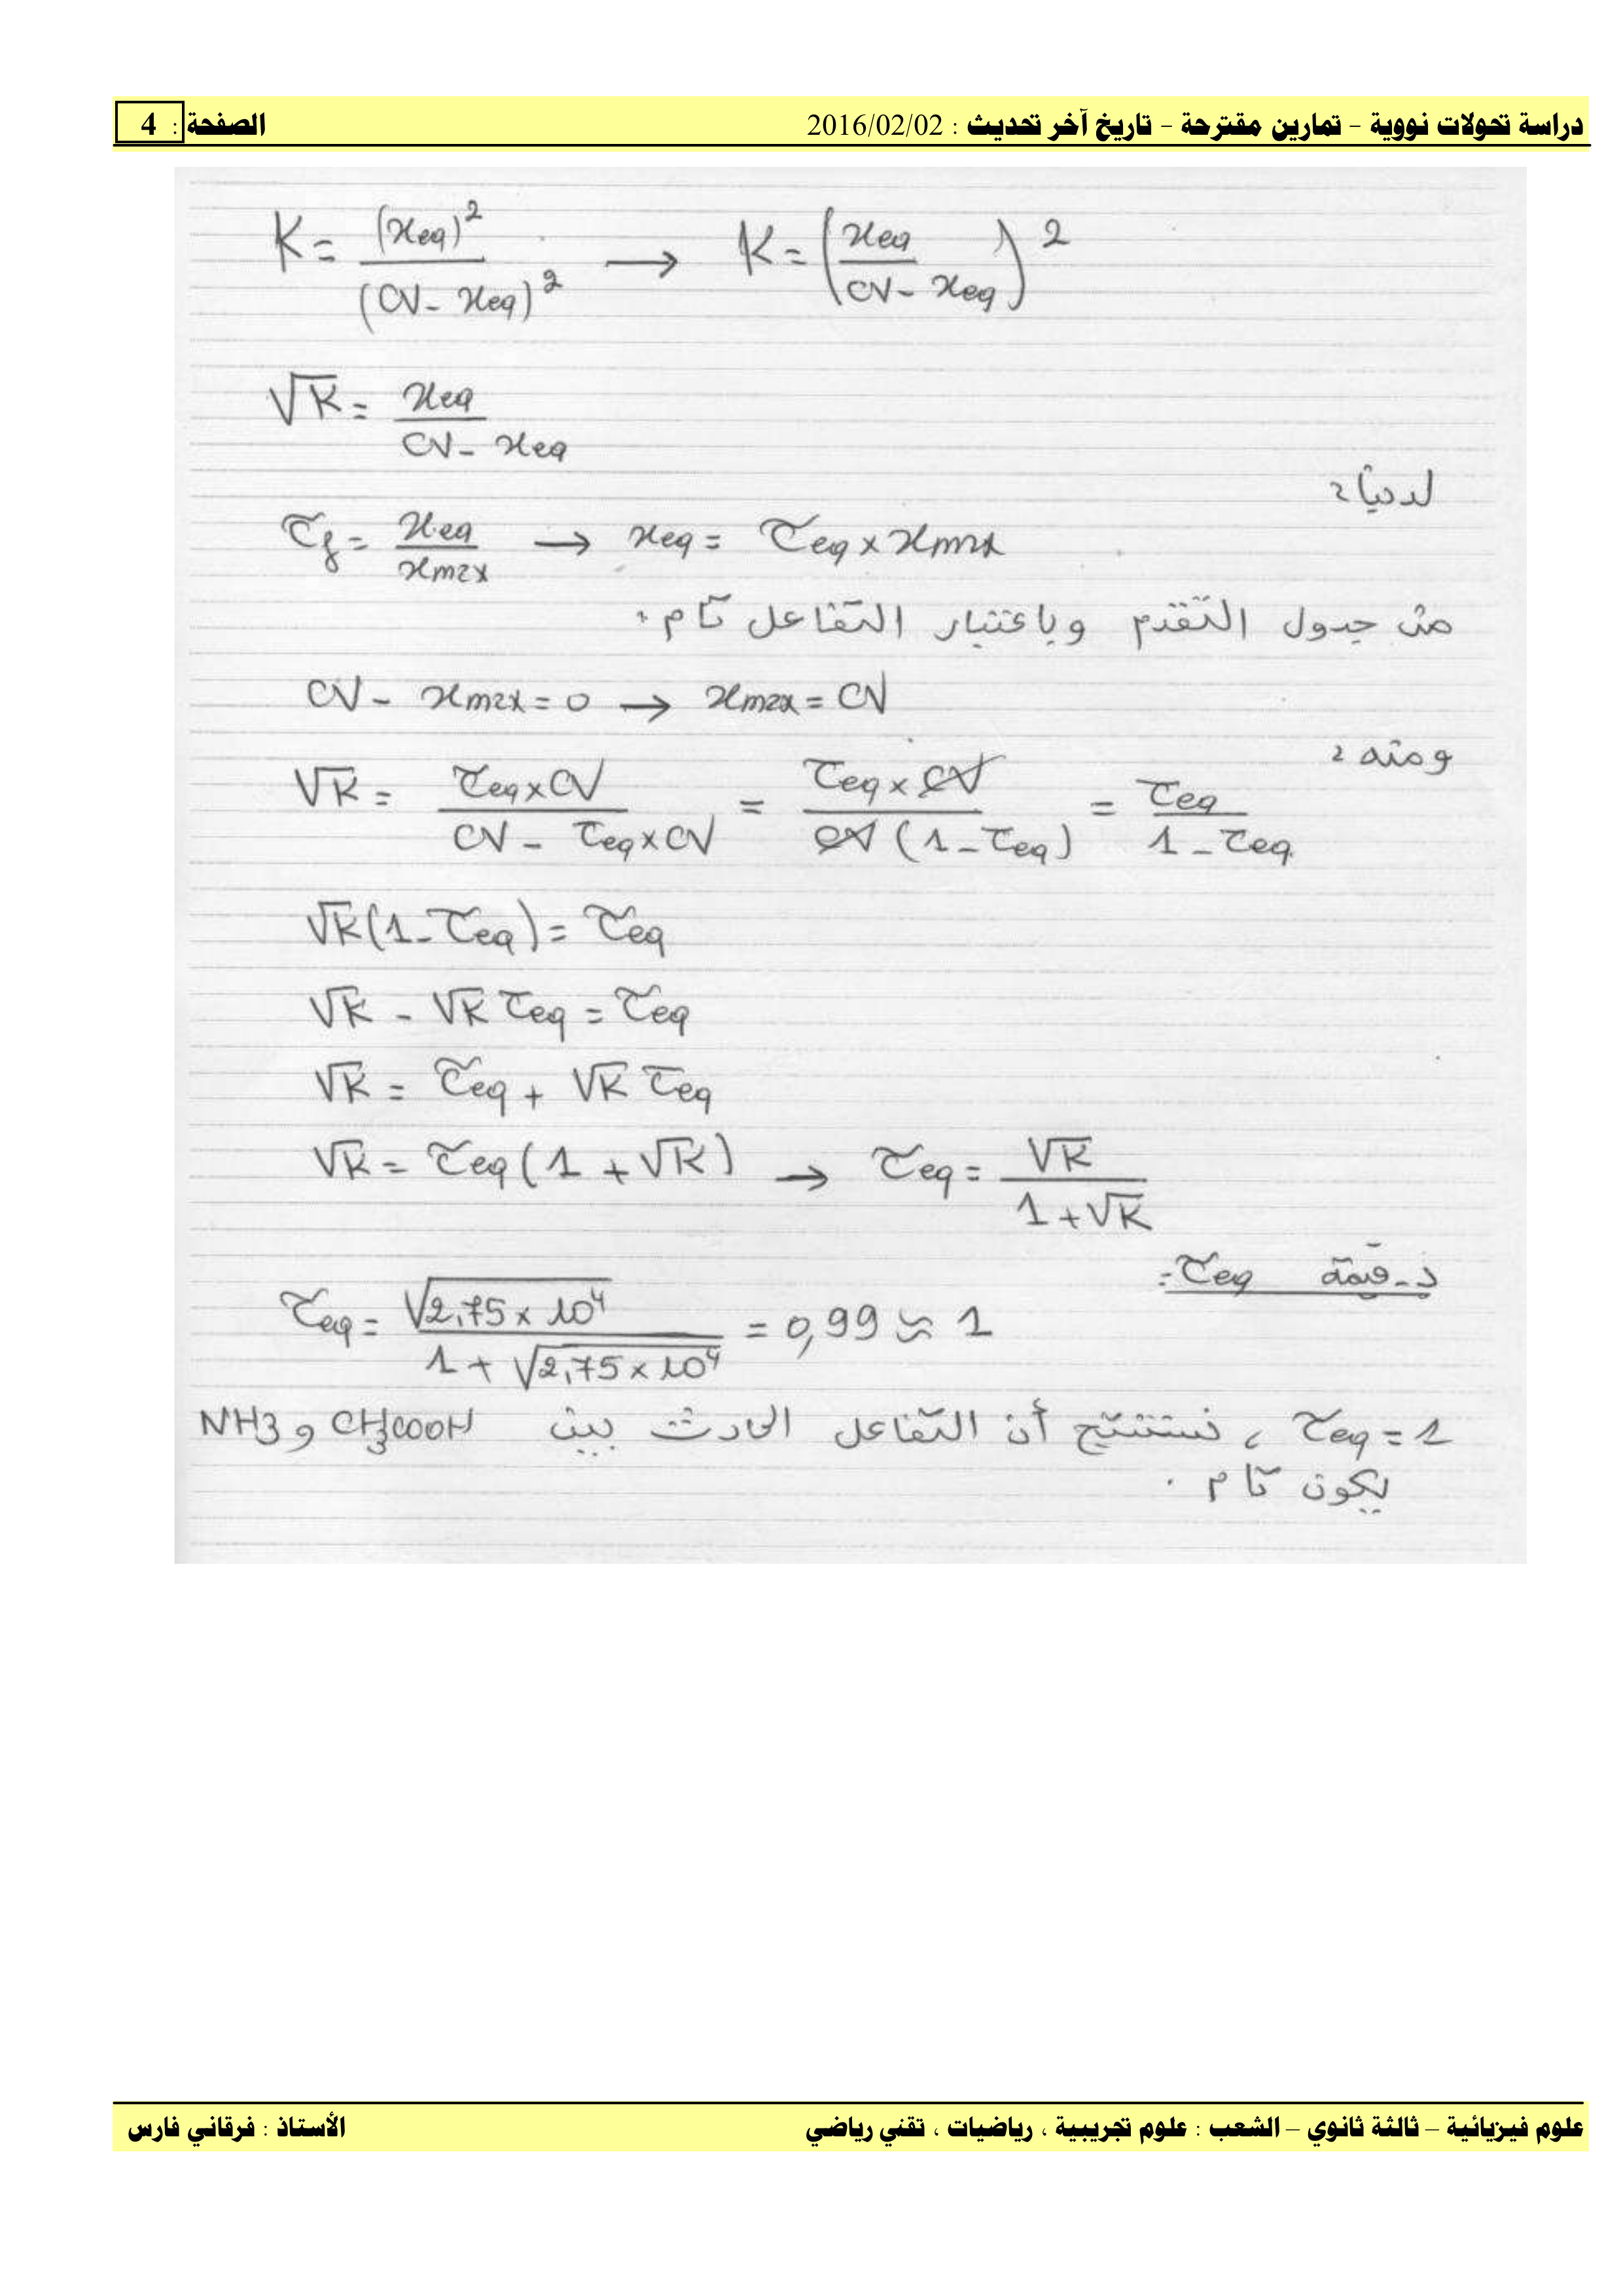 دراسة تحولات نووية – تمارين مقترحة – تاريخ آخر تحديث : 2016/02/02 الصفحة : 4
K = (xeq)² / (CV - xeq)² → K = (xeq / CV - xeq)²
√K = xeq / CV - xeq
لدينا :
τf = xeq / xmax → xeq = τeq × xmax
من جدول التقدم وباعتبار التفاعل تام :
CV - xmax = 0 → xmax = CV
ومنه :
√K = τeq × CV / CV - τeq × CV = τeq × CV / CV (1 - τeq) = τeq / 1 - τeq
√K (1 - τeq) = τeq
√K - √K τeq = τeq
√K = τeq + √K τeq
√K = τeq (1 + √K) → τeq = √K / 1 + √K
د - قيمة τeq :
τeq = √2,75 × 10⁴ / 1 + √2,75 × 10⁴ = 0,99 ≈ 1
τeq = 1 ، نستنتج أن التفاعل الحادث بين CH3COOH و NH3
يكون تام .
علوم فيزيائية – ثالثة ثانوي – الشعب : علوم تجريبية ، رياضيات ، تقني رياضي الأستاذ : فرقاني فارس